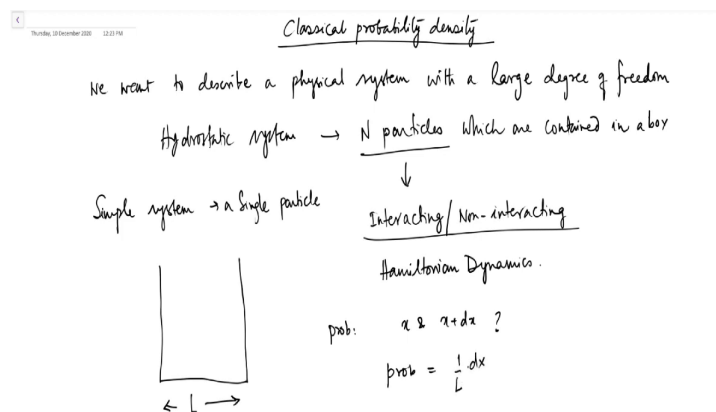 Thursday, 10 December 2020 12:23 PM
Classical probability density
We want to describe a physical system with a large degree of freedom
Hydrostatic system → N particles which are contained in a box
↓
Simple system → a Single particle
Interacting / Non-interacting
Hamiltonian Dynamics.
prob: x & x+dx ?
prob = 1/L dx
← L →